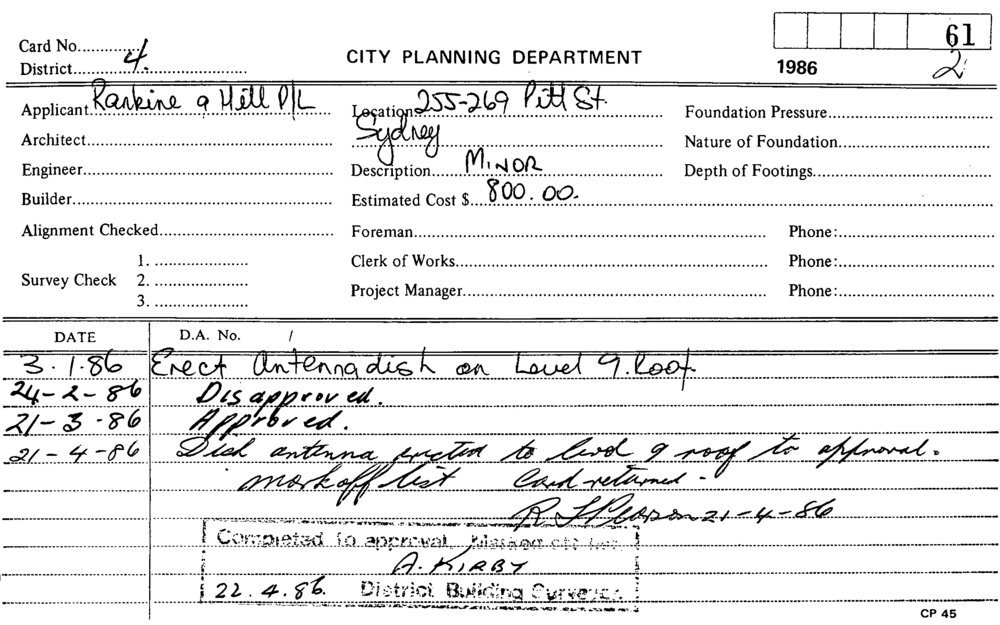 Card No............
District 4.
CITY PLANNING DEPARTMENT
61
1986
2
Applicant Rankine & Hill P/L
Location 255-269 Pitt St.
Sydney
Foundation Pressure
Architect
Nature of Foundation
Engineer
Description MINOR
Depth of Footings
Builder
Estimated Cost $ 800.00.
Alignment Checked
Foreman
Phone:
Survey Check
1.
2.
3.
Clerk of Works
Phone:
Project Manager
Phone:
DATE
D.A. No. /
3.1.86 Erect Antenna dish on Level 9. Roof.
24-2-86 Disapproved.
21-3-86 Approved.
21-4-86 Dish antenna erected to level 9 roof to approval.
mark off list Card returned -
R Pearson 21-4-86
Completed to approval. Marked off list.
A. KIRBY
22.4.86. District Building Surveyor.
CP 45